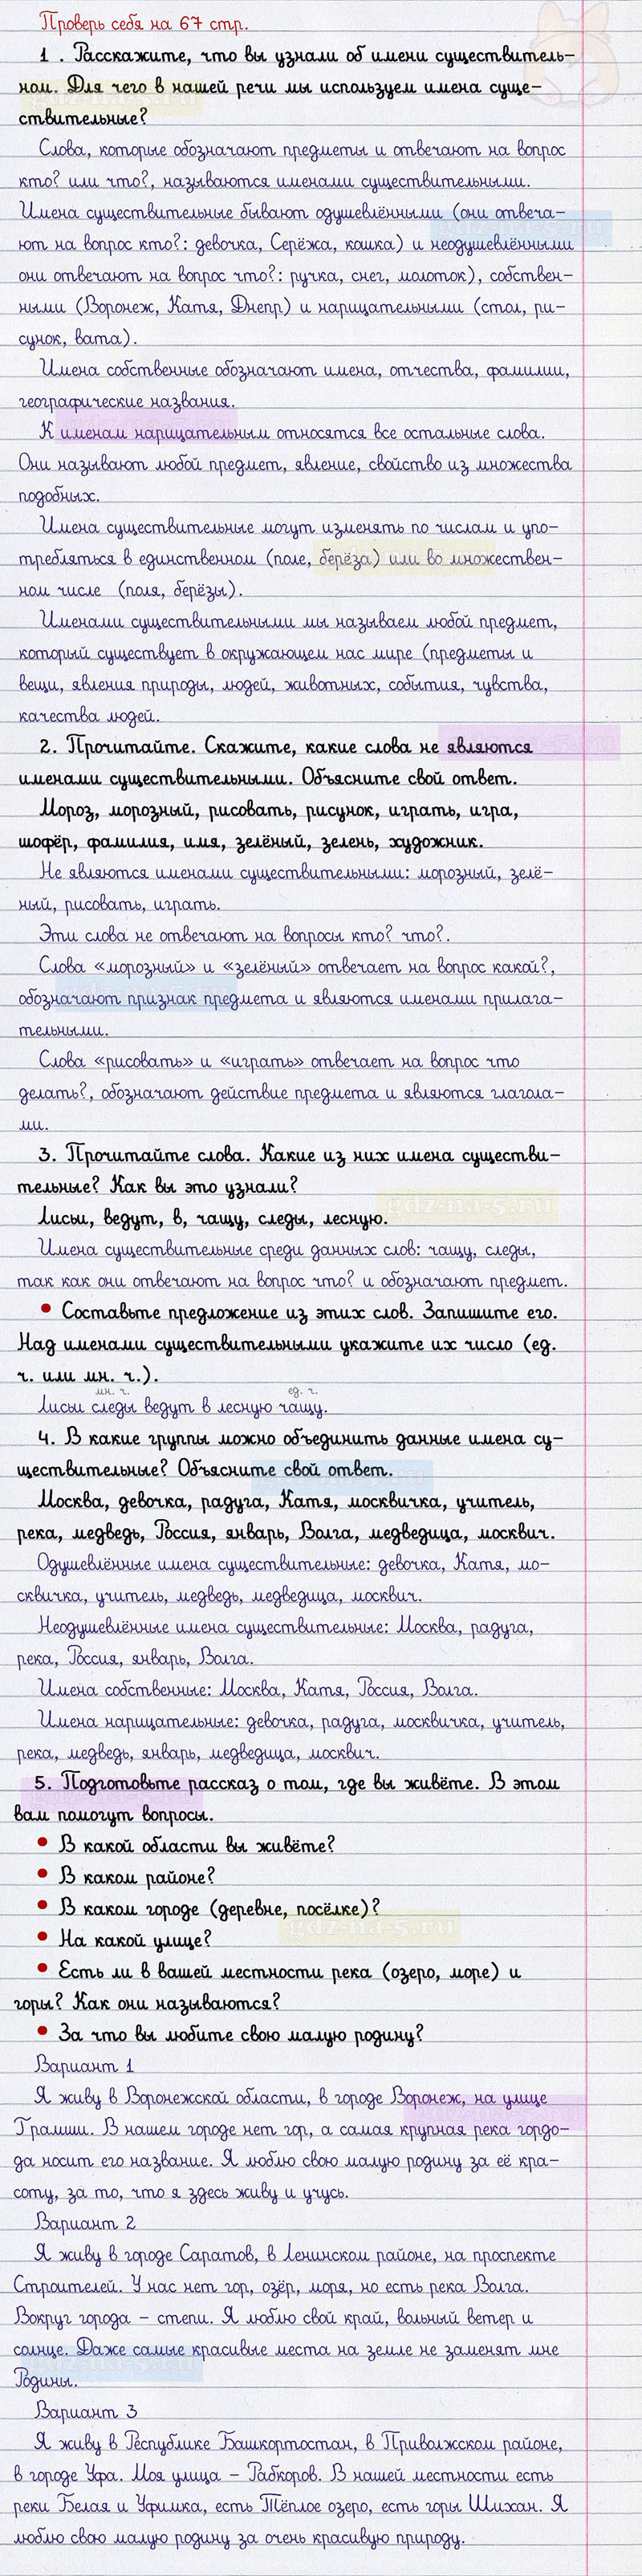 Проверь себя на 67 стр.
1 . Расскажите, что вы узнали об имени существитель-
ном. Для чего в нашей речи мы используем имена суще-
ствительные?
Слова, которые обозначают предметы и отвечают на вопрос
кто? или что?, называются именами существительными.
Имена существительные бывают одушевлёнными (они отвеча-
ют на вопрос кто?: девочка, Серёжа, кошка) и неодушевлёнными
они отвечают на вопрос что?: ручка, снег, молоток), собствен-
ными (Воронеж, Катя, Днепр) и нарицательными (стол, ри-
сунок, вата).
Имена собственные обозначают имена, отчества, фамилии,
географические названия.
К именам нарицательным относятся все остальные слова.
Они называют любой предмет, явление, свойство из множества
подобных.
Имена существительные могут изменять по числам и упо-
требляться в единственном (поле, берёза) или во множествен-
ном числе (поля, берёзы).
Именами существительными мы называем любой предмет,
который существует в окружающем нас мире (предметы и
вещи, явления природы, людей, животных, события, чувства,
качества людей.
2. Прочитайте. Скажите, какие слова не являются
именами существительными. Объясните свой ответ.
Мороз, морозный, рисовать, рисунок, играть, игра,
шофёр, фамилия, имя, зелёный, зелень, художник.
Не являются именами существительными: морозный, зелё-
ный, рисовать, играть.
Эти слова не отвечают на вопросы кто? что?.
Слова «морозный» и «зелёный» отвечает на вопрос какой?,
обозначают признак предмета и являются именами прилага-
тельными.
Слова «рисовать» и «играть» отвечает на вопрос что
делать?, обозначают действие предмета и являются глагола-
ми.
3. Прочитайте слова. Какие из них имена существи-
тельные? Как вы это узнали?
Лисьи, ведут, в, чащу, следы, лесную.
gdz-na-5.ru
Имена существительные среди данных слов: чащу, следы,
так как они отвечают на вопрос что? и обозначают предмет.
• Составьте предложение из этих слов. Запишите его.
Над именами существительными укажите их число (ед.
ч. или мн. ч.).
мн. ч. ед. ч.
Лисьи следы ведут в лесную чащу.
4. В какие группы можно объединить данные имена су-
ществительные? Объясните свой ответ.
Москва, девочка, радуга, Катя, москвичка, учитель,
река, медведь, Россия, январь, Волга, медведица, москвич.
Одушевлённые имена существительные: девочка, Катя, мо-
сквичка, учитель, медведь, медведица, москвич.
Неодушевлённые имена существительные: Москва, радуга,
река, Россия, январь, Волга.
Имена собственные: Москва, Катя, Россия, Волга.
Имена нарицательные: девочка, радуга, москвичка, учитель,
река, медведь, январь, медведица, москвич.
5. Подготовьте рассказ о том, где вы живёте. В этом
вам помогут вопросы.
• В какой области вы живёте?
• В каком районе?
• В каком городе (деревне, посёлке)?
gdz-na-5.ru
• На какой улице?
• Есть ли в вашей местности река (озеро, море) и
горы? Как они называются?
• За что вы любите свою малую родину?
Вариант 1
Я живу в Воронежской области, в городе Воронеж, на улице
Грамши. В нашем городе нет гор, а самая крупная река гордо-
да носит его название. Я люблю свою малую родину за её кра-
соту, за то, что я здесь живу и учусь.
Вариант 2
Я живу в городе Саратов, в Ленинском районе, на проспекте
Строителей. У нас нет гор, озёр, моря, но есть река Волга.
Вокруг города – степи. Я люблю свой край, вольный ветер и
солнце. Даже самые красивые места на земле не заменят мне
Родины.
Вариант 3
Я живу в Республике Башкортостан, в Приволжском районе,
в городе Уфа. Моя улица – Рабкоров. В нашей местности есть
реки Белая и Уфимка, есть Тёплое озеро, есть горы Шихан. Я
люблю свою малую родину за очень красивую природу.